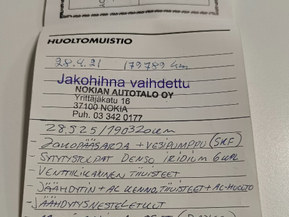 HUOLTOMUISTIO
28.4.21 179789 km
Jakohihna vaihdettu
NOKIAN AUTOTALO OY
Yrittäjäkatu 16
37100 NOKIA
Puh. 03 342 0177
28.5.25/190320km
JAKOPÄÄSARJA + VESIPUMPPU (SKF)
SYTYTYSTULPAT DENSO IRIDIUM 6 KPL
VENTTIILIKANNEN TIIVISTEET
JÄÄHDYTIN + AC KENNO, TIIVISTEET + AC-HUOLTO
JÄÄHDYTYSNESTELETKUT